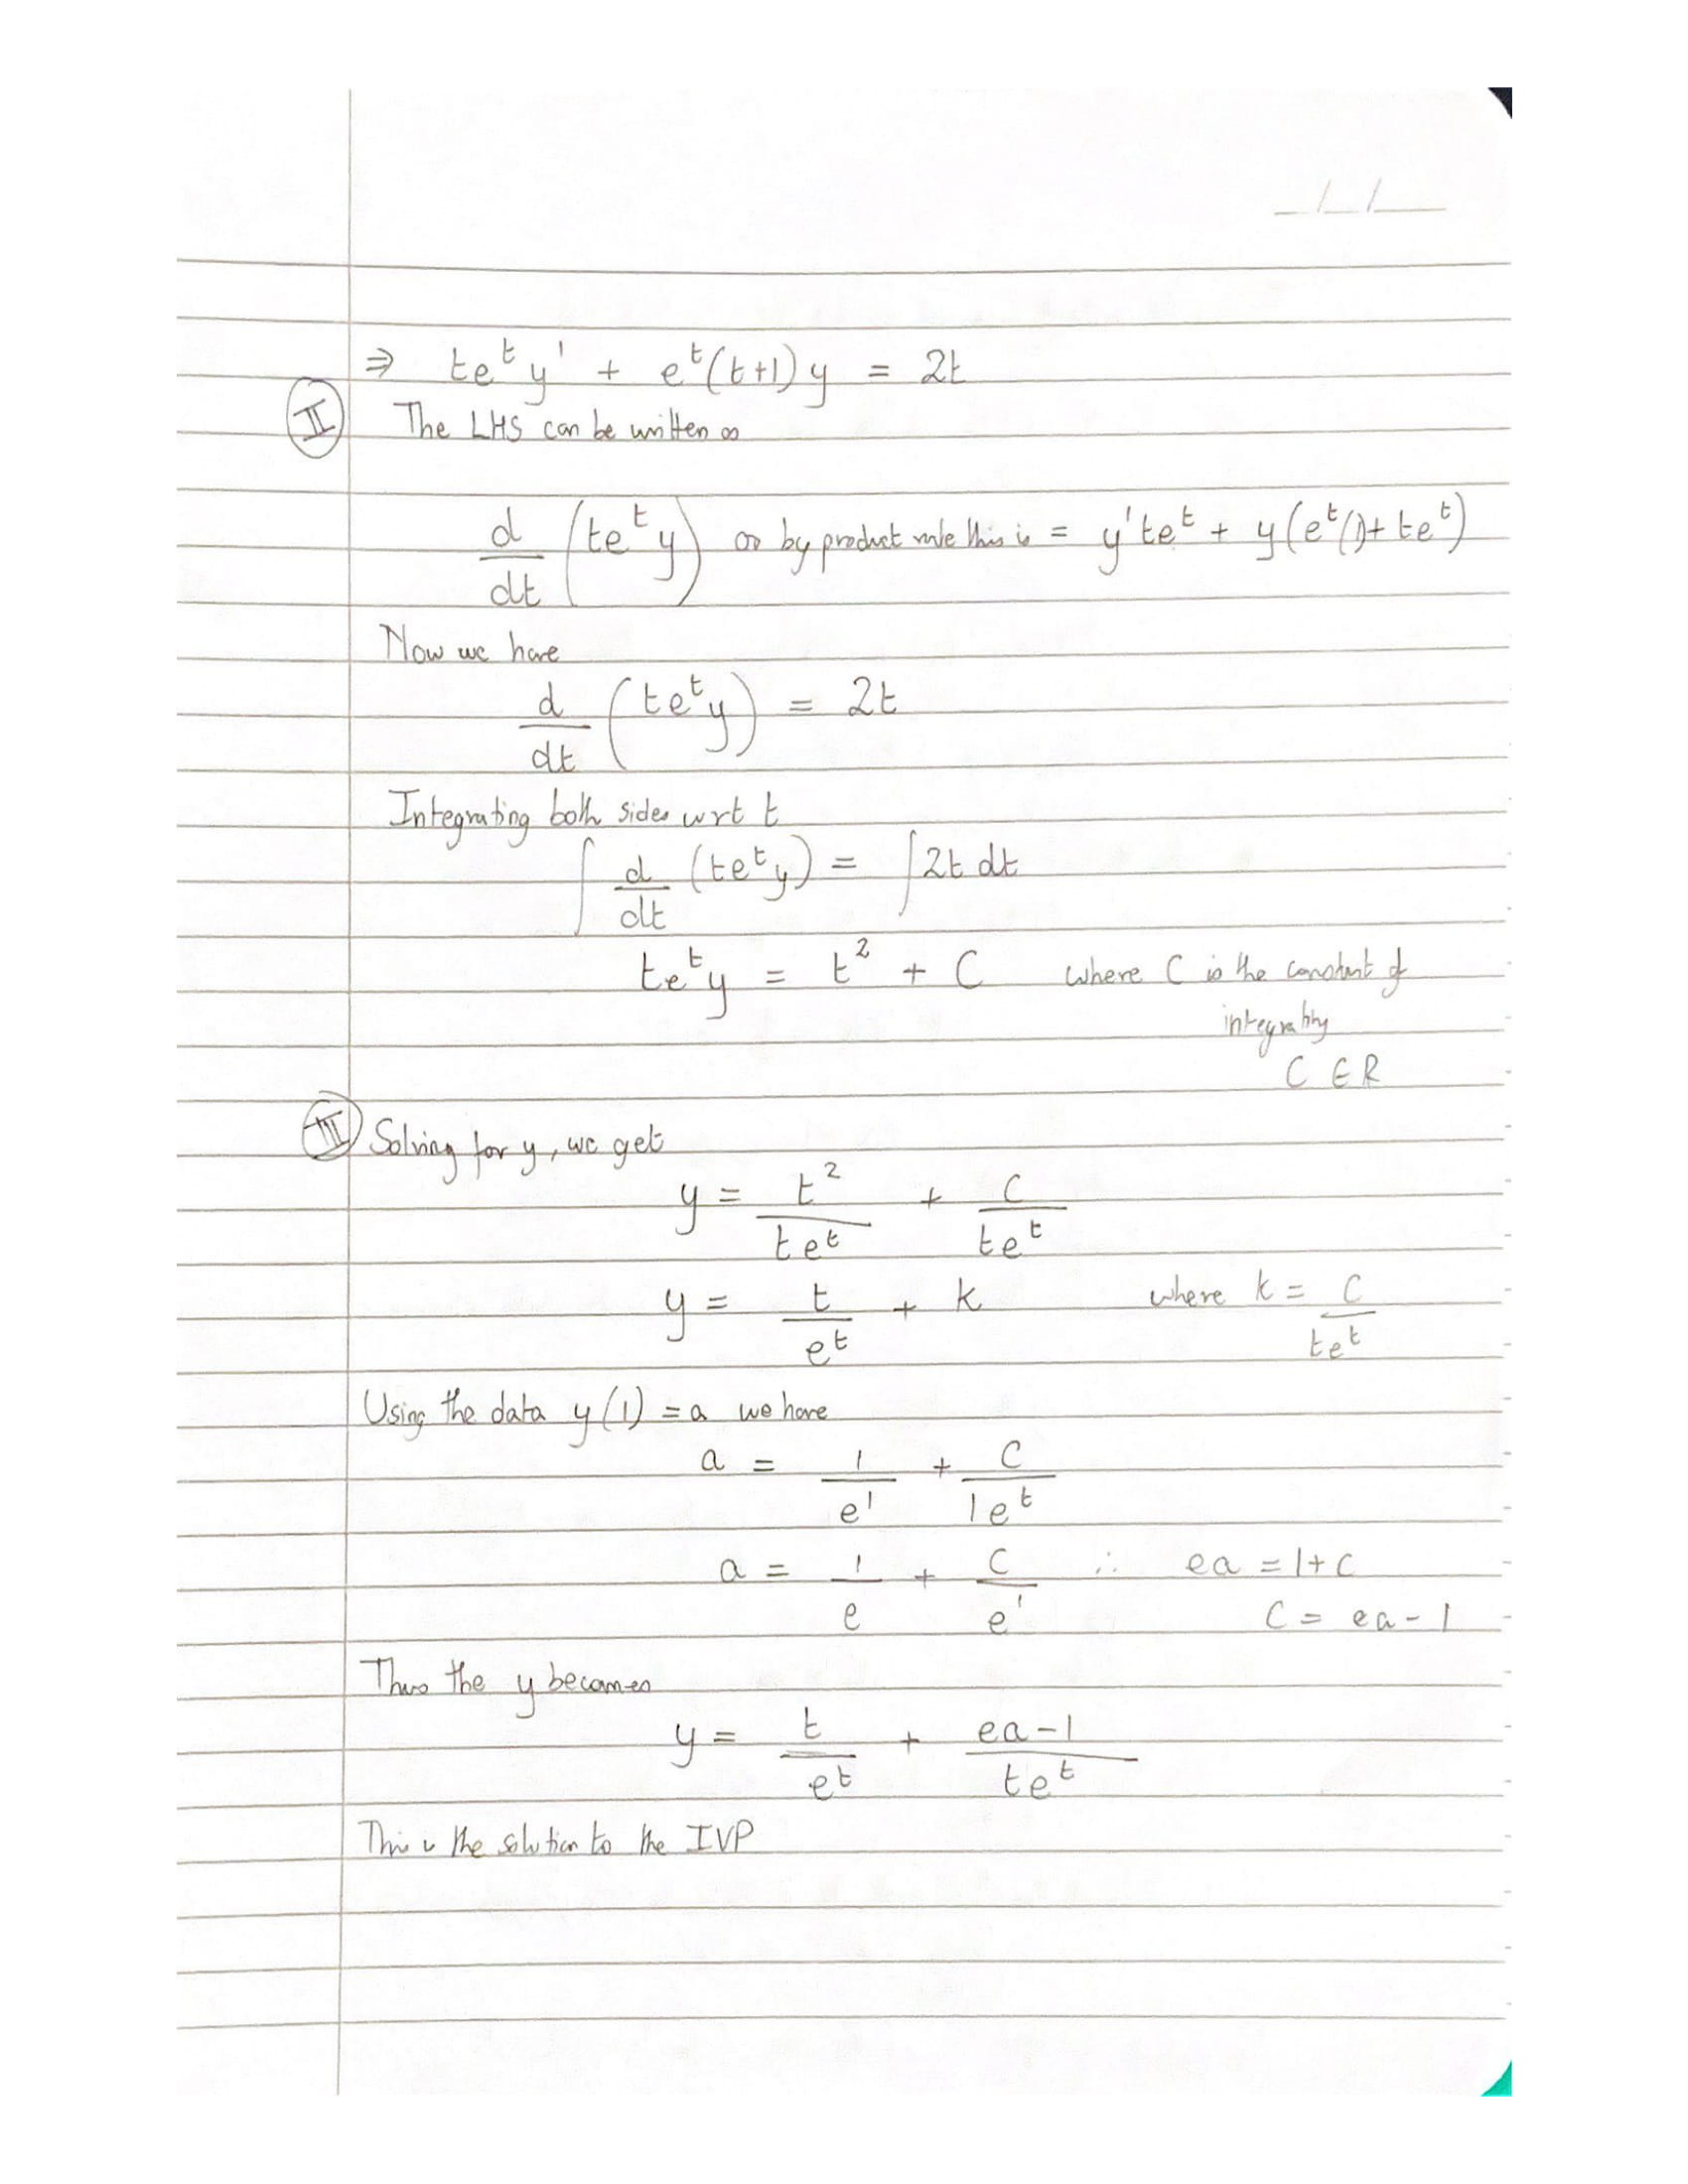 __/__/____
⇒ te^t y' + e^t(t+1)y = 2t
II The LHS can be written as
d/dt (te^t y) as by product rule this is = y'te^t + y(e^t(1)+te^t)
Now we have
d/dt (te^t y) = 2t
Integrating both sides wrt t
∫ d/dt (te^t y) = ∫2t dt
te^t y = t² + C where C is the constant of
C ∈ R
III Solving for y, we get
y = t²/te^t + C/te^t
y = t/e^t + k where k = C/te^t
Using the data y(1) = a we have
a = 1/e^1 + C/1e^t
a = 1/e + C/e^1 ∴ ea = 1+C
C = ea-1
Thus the y becomes
y = t/e^t + ea-1/te^t
This is the solution to the IVP